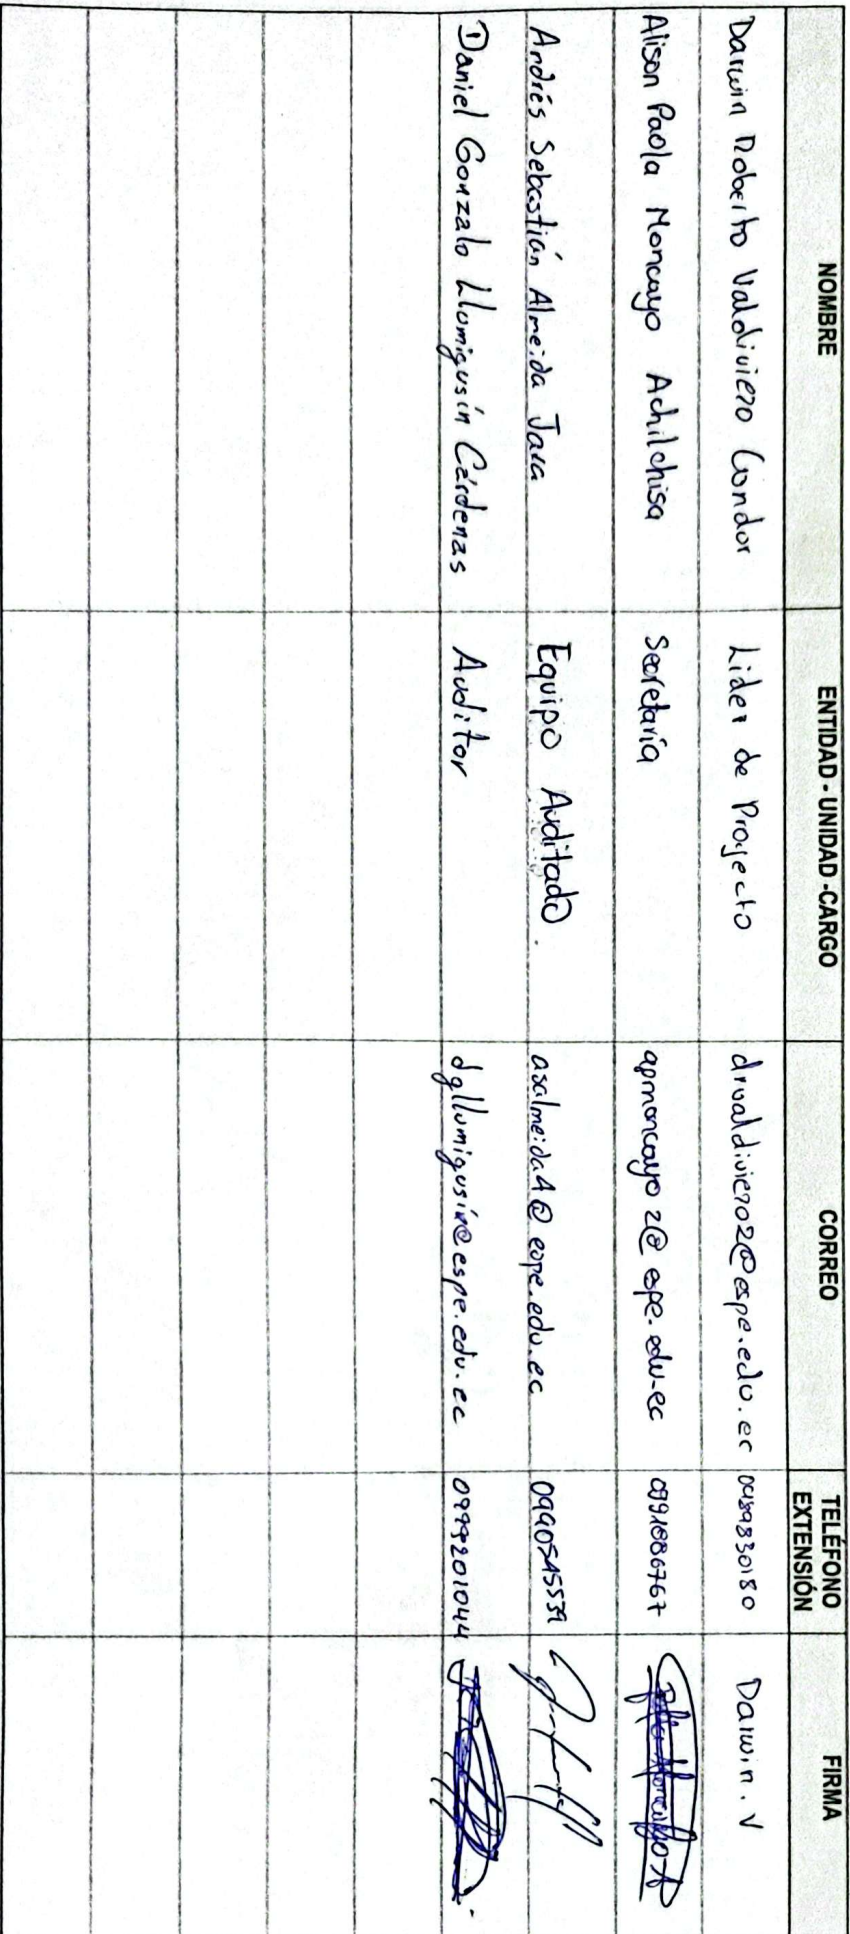 NOMBRE ENTIDAD - UNIDAD -CARGO CORREO TELÉFONO EXTENSIÓN FIRMA
Darwin Roberto Valdiviezo Condor Lider de Proyecto drvaldiviezo2@espe.edu.ec 0989830180 Darwin.V
Alison Paola Moncayo Achilchisa Secretaría apmoncayo2@espe.edu.ec 0991886767
Andrés Sebastián Almeida Jara Equipo Auditado. asalmeida4@espe.edu.ec
① Daniel Gonzalo Llumiqusín Cárdenas Auditor dgllumiqusin@espe.edu.ec 0999201044